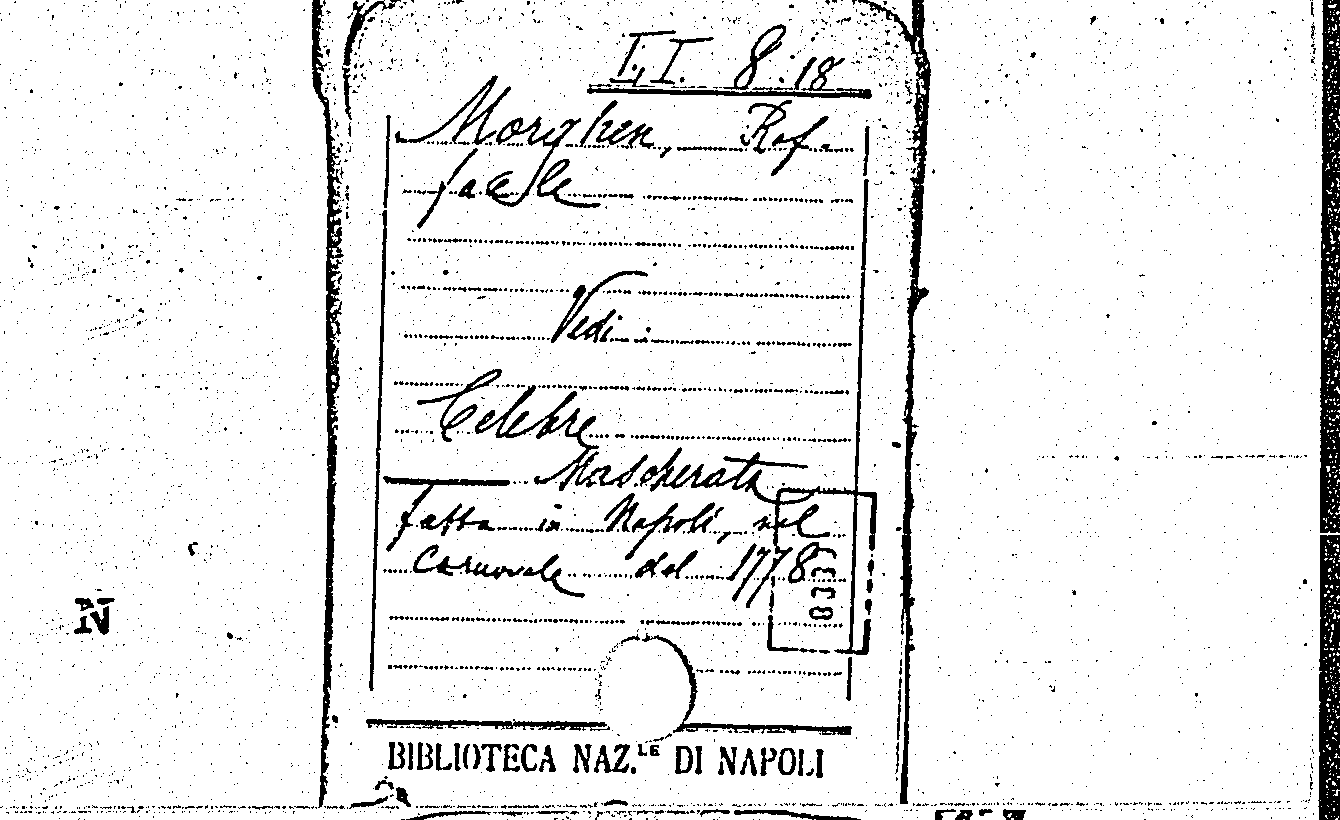 I, I. 8:18
Morghen, Raf.
Vedi:
Celebre
Mascherata
fatta in Napoli, nel
Carnovale del 1778
N
BIBLIOTECA NAZ.LE DI NAPOLI